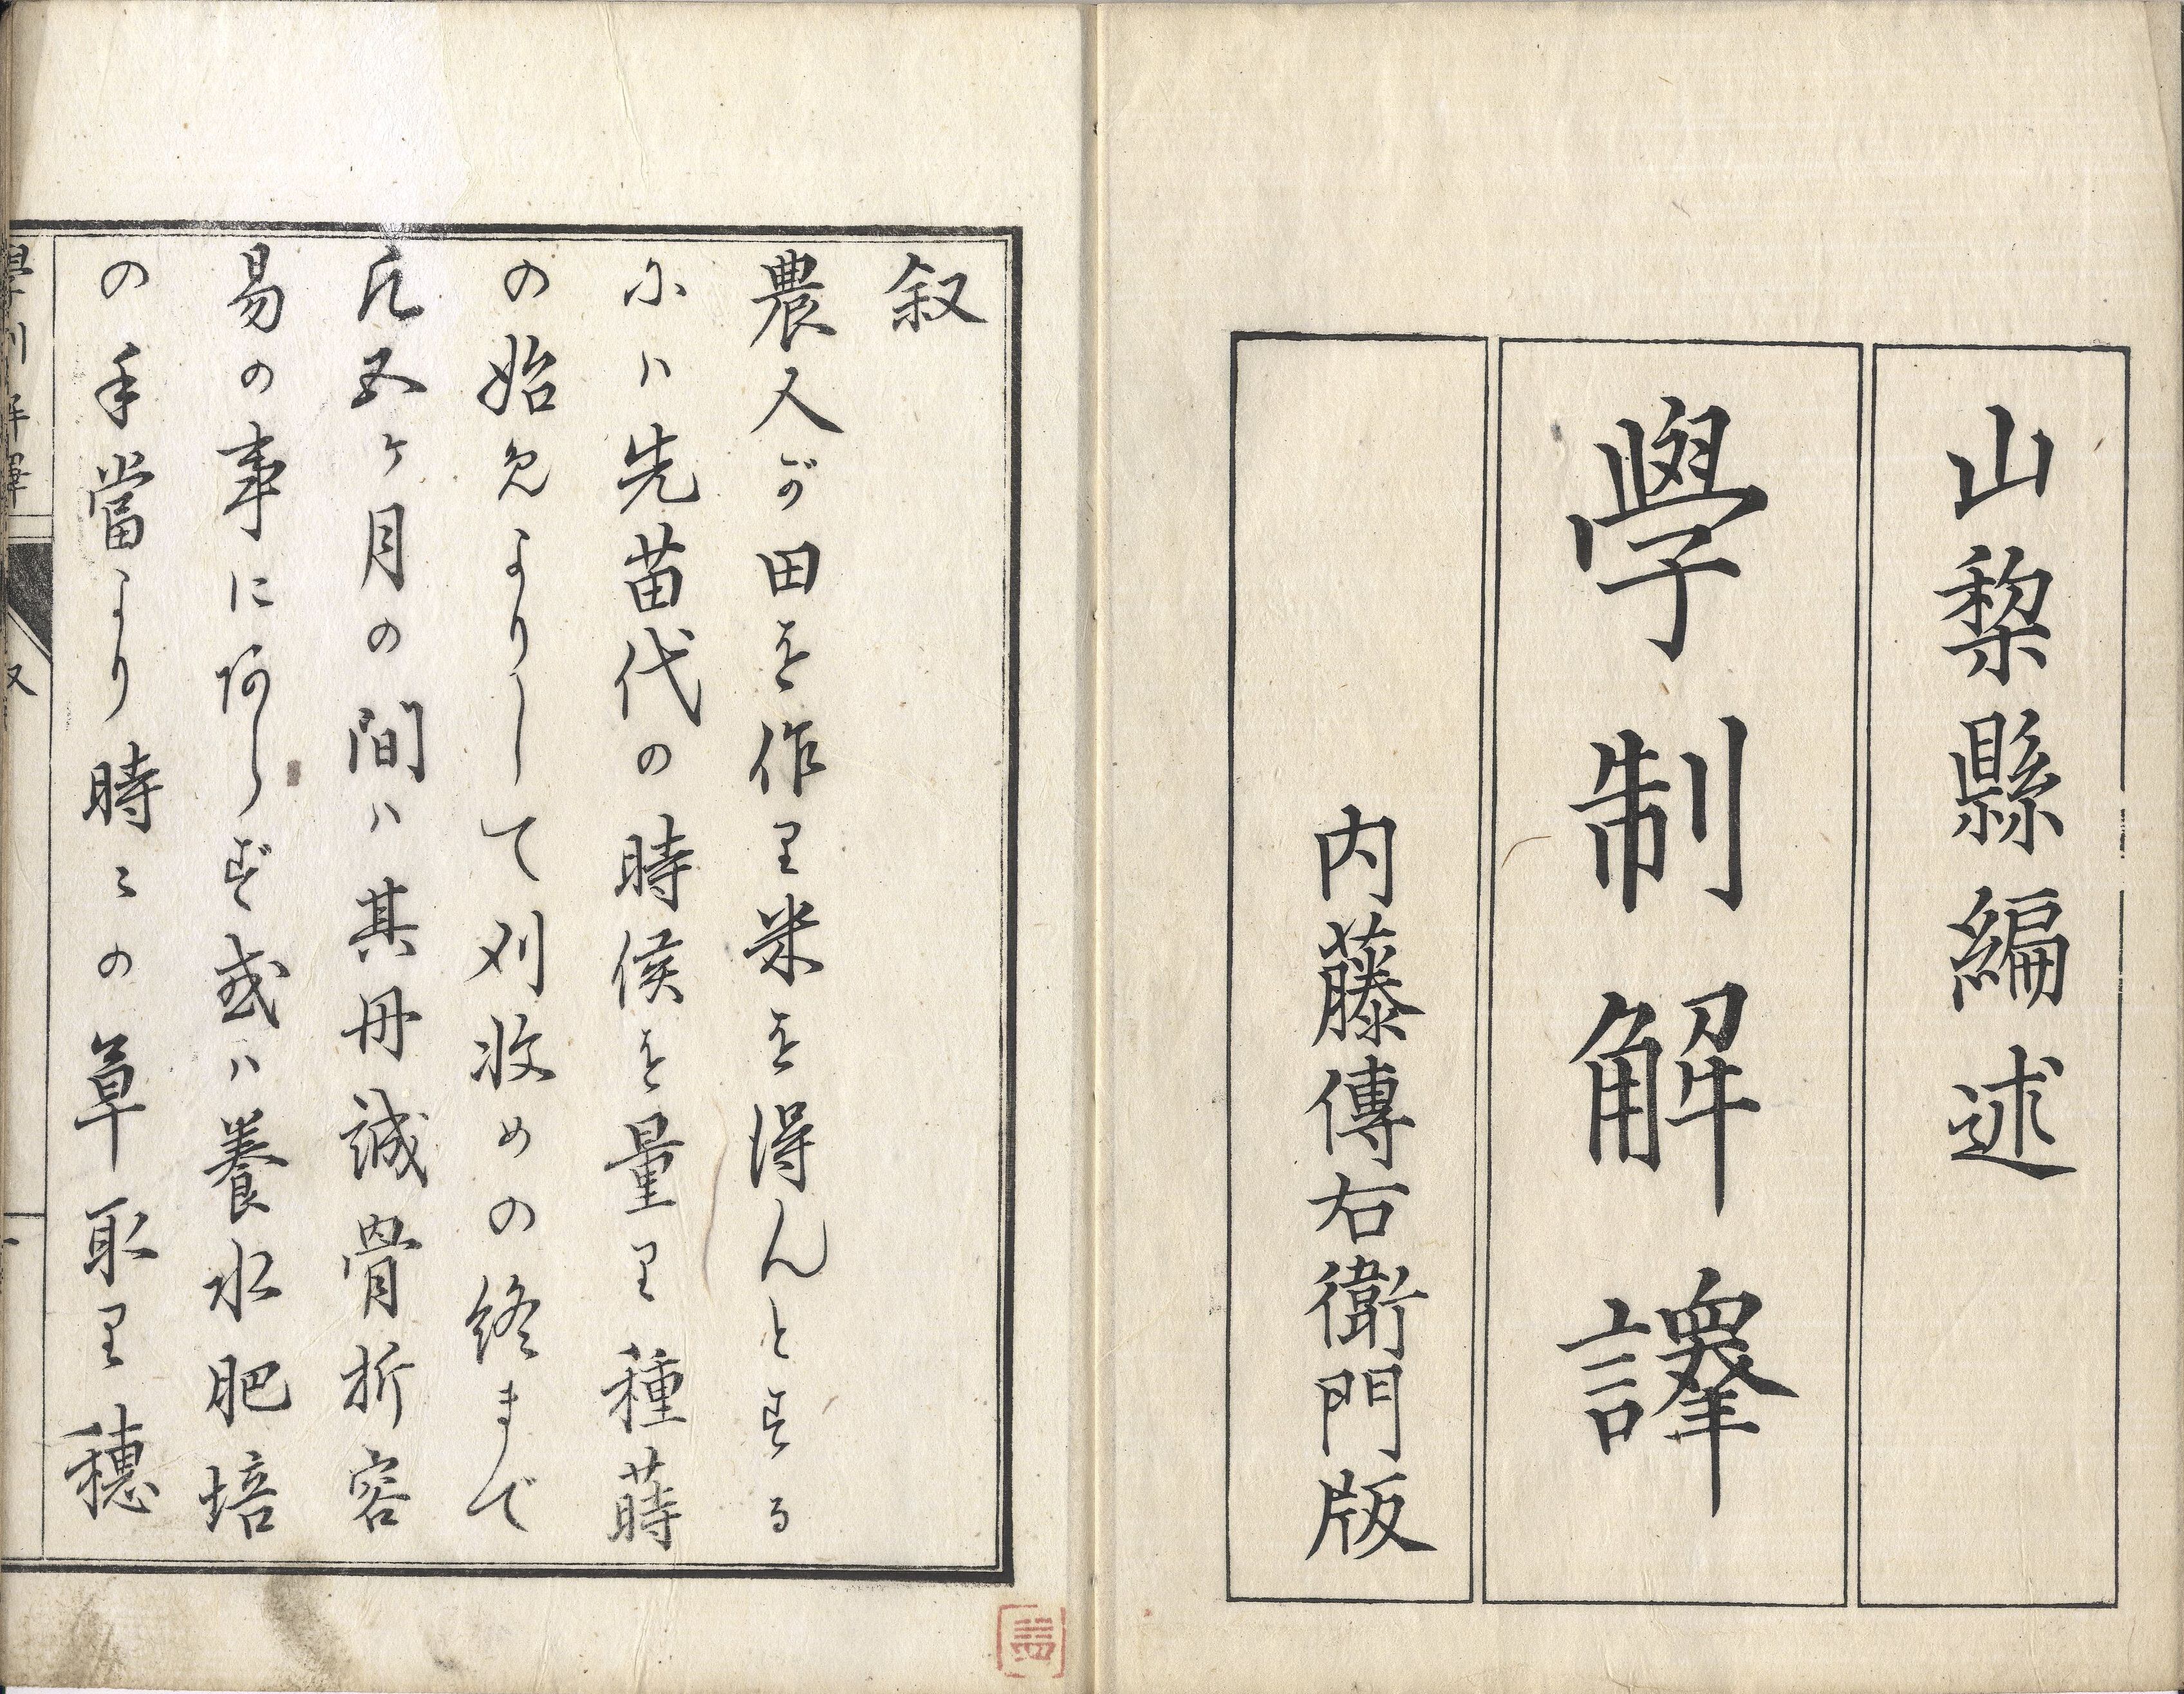 山梨縣編述
學制解譯
内藤傳右衛門版
叙
農人が田を作り米を得んとする
には先苗代の時候を量り種蒔
の始めよりして刈收めの終まで
凡五ケ月の間ハ其丹誠骨折容
易の事にあらず或ハ養水肥培
の手當より時〻の草取り穂